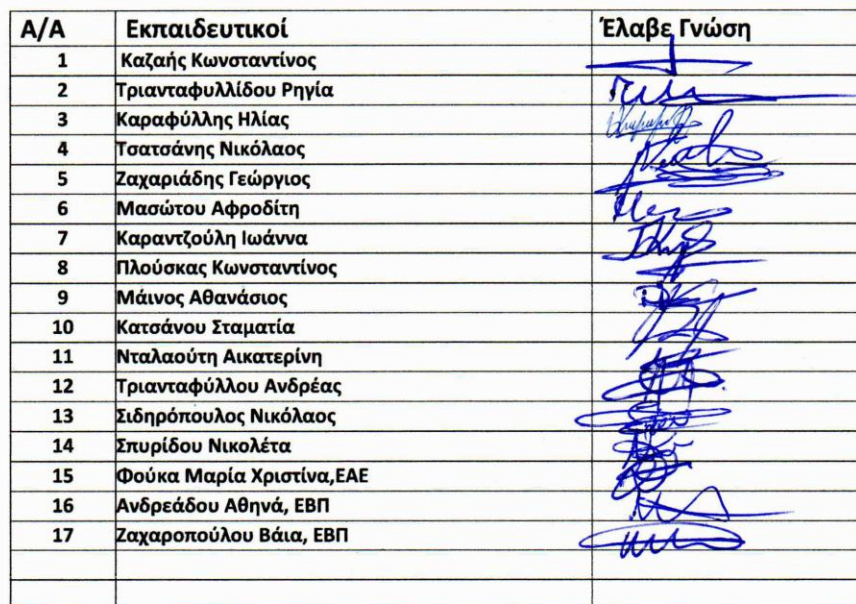 Α/Α Εκπαιδευτικοί Έλαβε Γνώση
1 Καζαής Κωνσταντίνος
2 Τριανταφυλλίδου Ρηγία
3 Καραφύλλης Ηλίας
4 Τσατσάνης Νικόλαος
5 Ζαχαριάδης Γεώργιος
6 Μασώτου Αφροδίτη
7 Καραντζούλη Ιωάννα
8 Πλούσκας Κωνσταντίνος
9 Μάινος Αθανάσιος
10 Κατσάνου Σταματία
11 Νταλαούτη Αικατερίνη
12 Τριανταφύλλου Ανδρέας
13 Σιδηρόπουλος Νικόλαος
14 Σπυρίδου Νικολέτα
15 Φούκα Μαρία Χριστίνα,ΕΑΕ
16 Ανδρεάδου Αθηνά, ΕΒΠ
17 Ζαχαροπούλου Βάια, ΕΒΠ